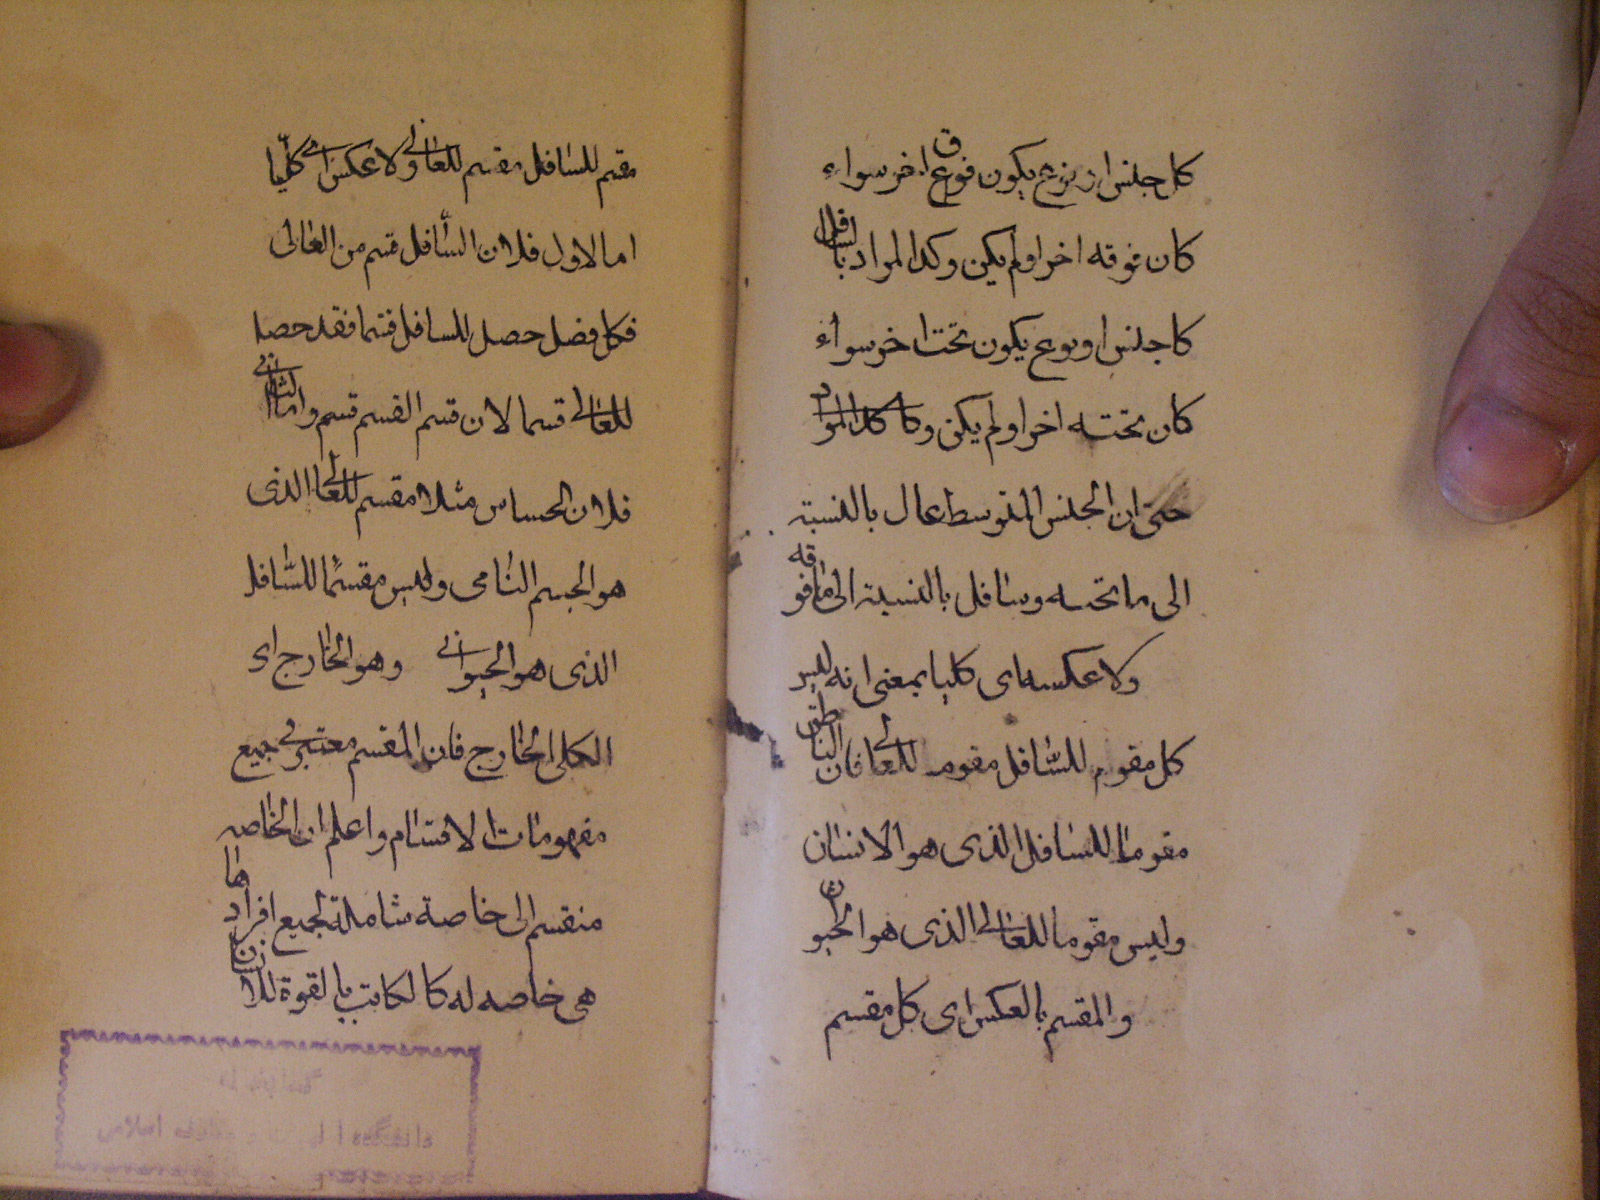 كل جنس او نوع يكون فوق اخر سواء
كان فوقه اخر او لم يكن وكذا المراد بالسافل
كل جنس او نوع يكون تحت اخر سواء
كان تحته اخر او لم يكن وكا كذا المراد
حتى ان الجنس المتوسط عال بالنسبة
الى ما تحته وسافل بالنسبة الى ما فوقه
ولا عكسه اى كليا بمعنى انه ليس
كل مقوم للسافل مقوم للعالى فان الناطق
مقوما للسافل الذى هو الانسان
وليس مقوما للعالى الذى هو الحيوان
والمقسم بالعكس اى كل مقسم
مقسم للسافل مقسم للعالى ولا عكس اى كليا
اما الاول فلان السافل قسم من العالى
فكل فصل حصل للسافل قسما فقد حصل
للعالى قسما لان قسم القسم قسم واما الثانى
فلان الحساس مثلا مقسم للعالى الذى
هو الجسم النامى وليس مقسما للسافل
الذى هو الحيوانى وهو الخارج اى
الكلى الخارج فان المقسم معتبر فى جميع
مفهومات الاقسام واعلم ان الخاصه
منقسم الى خاصة شاملة لجميع افراد ما
هى خاصه له كالكاتب بالقوة للانسان
اسلامى